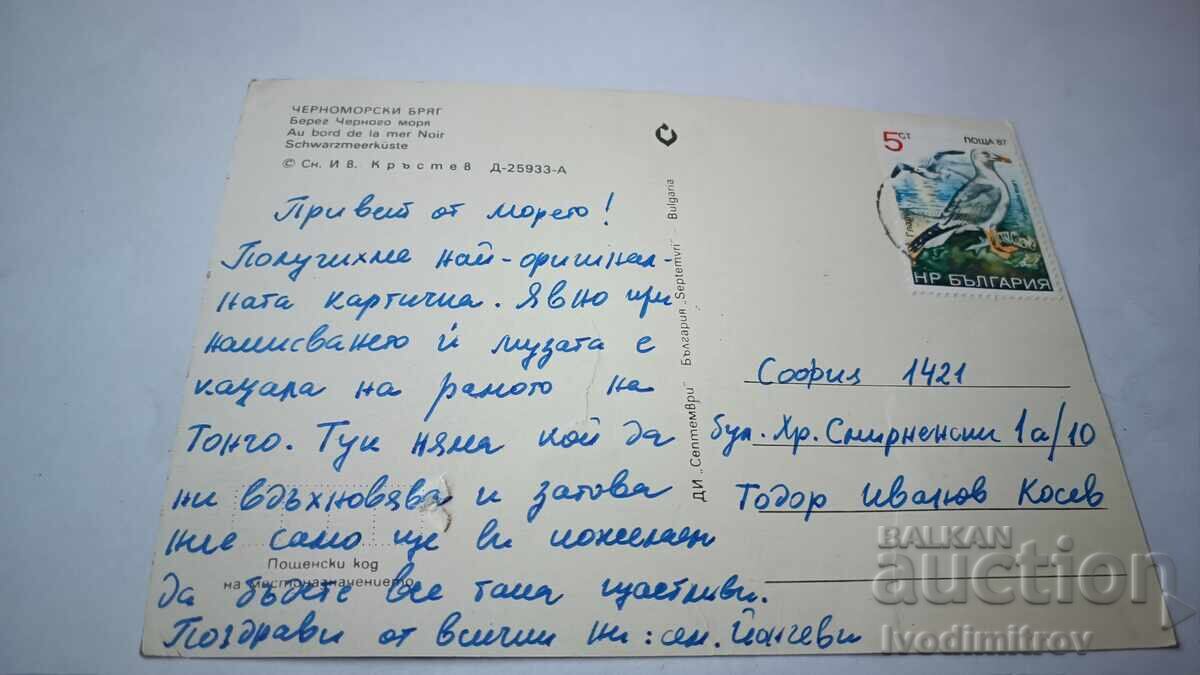 ЧЕРНОМОРСКИ БРЯГ
Берег Черного моря
Au bord de la mer Noir
Schwarzmeerküste
© Сн. Ив. Кръстев Д-25933-А
Привет от морето!
Получихме най-оригинал-
ната картичка. Явно при
написването ѝ музата е
кацала на рамото на
Тончо. Тук няма кой да
ни вдъхновява и затова
ние само ще ви пожелаем
да бъдете все така щастливи.
Поздрави от всички ни: сем. Йончеви
Пощенски код
на местоназначението
ДИ „Септември" България „Septemvri" - Bulgaria
5 СТ
ПОЩА '87
НР БЪЛГАРИЯ
София 1421
бул. Хр. Смирненски 1а/10
Тодор Иванов Косев
BALKAN
auction
Ivodimitrov